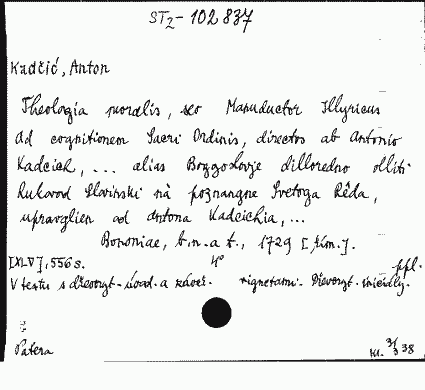 ST2-102837
Kadčić, Anton
Theologia moralis, seu Manuductor Illyricus
ad cognitionem Sacri Ordinis, directos ab Antonio
Kadcich, ... alias Boggoslovje dilloredno olliti
Rukovod Slovinski nà poznangne Svetoga Rêda,
upravglien od Antona Kadcichia, ...
Bononiae, b.n.a t., 1729 [řím.].
[XLV], 556 s. 4° ppl.
V textu s dřevoryt. úvod. a závěr. vignetami. Dřevoryt. iniciály.
Patera
31/3 38